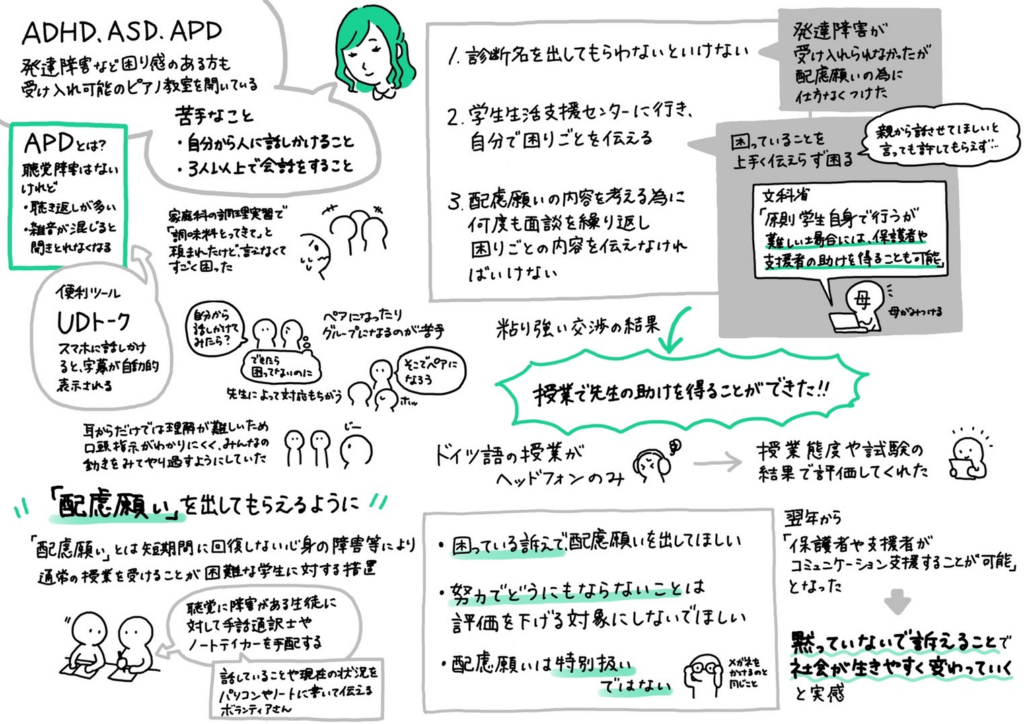 ADHD、ASD、APD
発達障害など困り感のある方も
受け入れ可能のピアノ教室を開いている
苦手なこと
・自分から人に話しかけること
・3人以上で会話をすること
APDとは?
聴覚障害はない
けれど
・聴き返しが多い
・雑音が混じると
聞きとれなくなる
便利ツール
UDトーク
スマホに話しかけ
ると、字幕が自動的
表示される
家庭科の調理実習で
「調味料とってきて」と
頼まれたけど、言えなくて
すごく困った
自分から
話しかけて
みたら?
できたら
困ってないのに
ペアになったり
グループになるのが苦手
そこでペアに
なろう
先生によって対応もちがう
ホッ
耳からだけでは理解が難しいため
口頭指示がわかりにくく、みんなの
動きをみてやり過すようにしていた
じー
「配慮願い」を出してもらえるように
「配慮願い」とは短期間に回復しない心身の障害等により
通常の授業を受けることが困難な学生に対する措置
聴覚に障害がある生徒に
対して手話通訳士や
ノートテイカーを手配する
話していることや現在の状況を
パソコンやノートに書いて伝える
ボランティアさん
1. 診断名を出してもらわないといけない
発達障害が
受け入れられなかったが
配慮願いの為に
仕方なくつけた
2. 学生生活支援センターに行き、
自分で困りごとを伝える
困っていることを
上手く伝えらず困る
親から話させてほしいと
言っても許してもらえず…
3. 配慮願いの内容を考える為に
何度も面談を繰り返し
困りごとの内容を伝えなけれ
ばいけない
文科省
「原則学生自身で行うが
難しい場合には、保護者や
支援者の助けを得ることも可能」
母
母がみつける
粘り強い交渉の結果
授業で先生の助けを得ることができた!!
ドイツ語の授業が
ヘッドフォンのみ
授業態度や試験の
結果で評価してくれた
・困っている訴えで配慮願いを出してほしい
・努力でどうにもならないことは
評価を下げる対象にしないでほしい
・配慮願いは特別扱い
ではない
メガネを
かけるのと
同じこと
翌年から
「保護者や支援者が
コミュニケーション支援することが可能」
となった
黙っていないで訴えることで
社会が生きやすく変わっていく
と実感